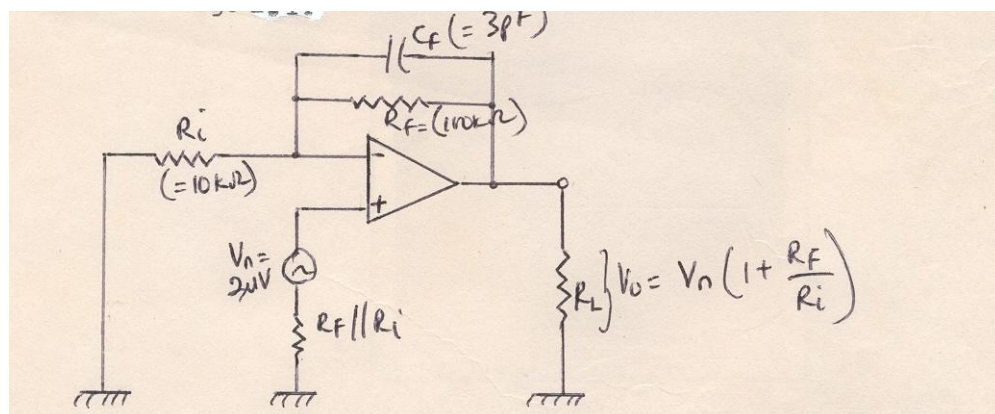 CF (= 3pF)
RF= (100kΩ)
Ri
(=10kΩ)
-
+
Vn =
2µV
RF // Ri
RL } Vo = Vn (1 + RF/Ri)